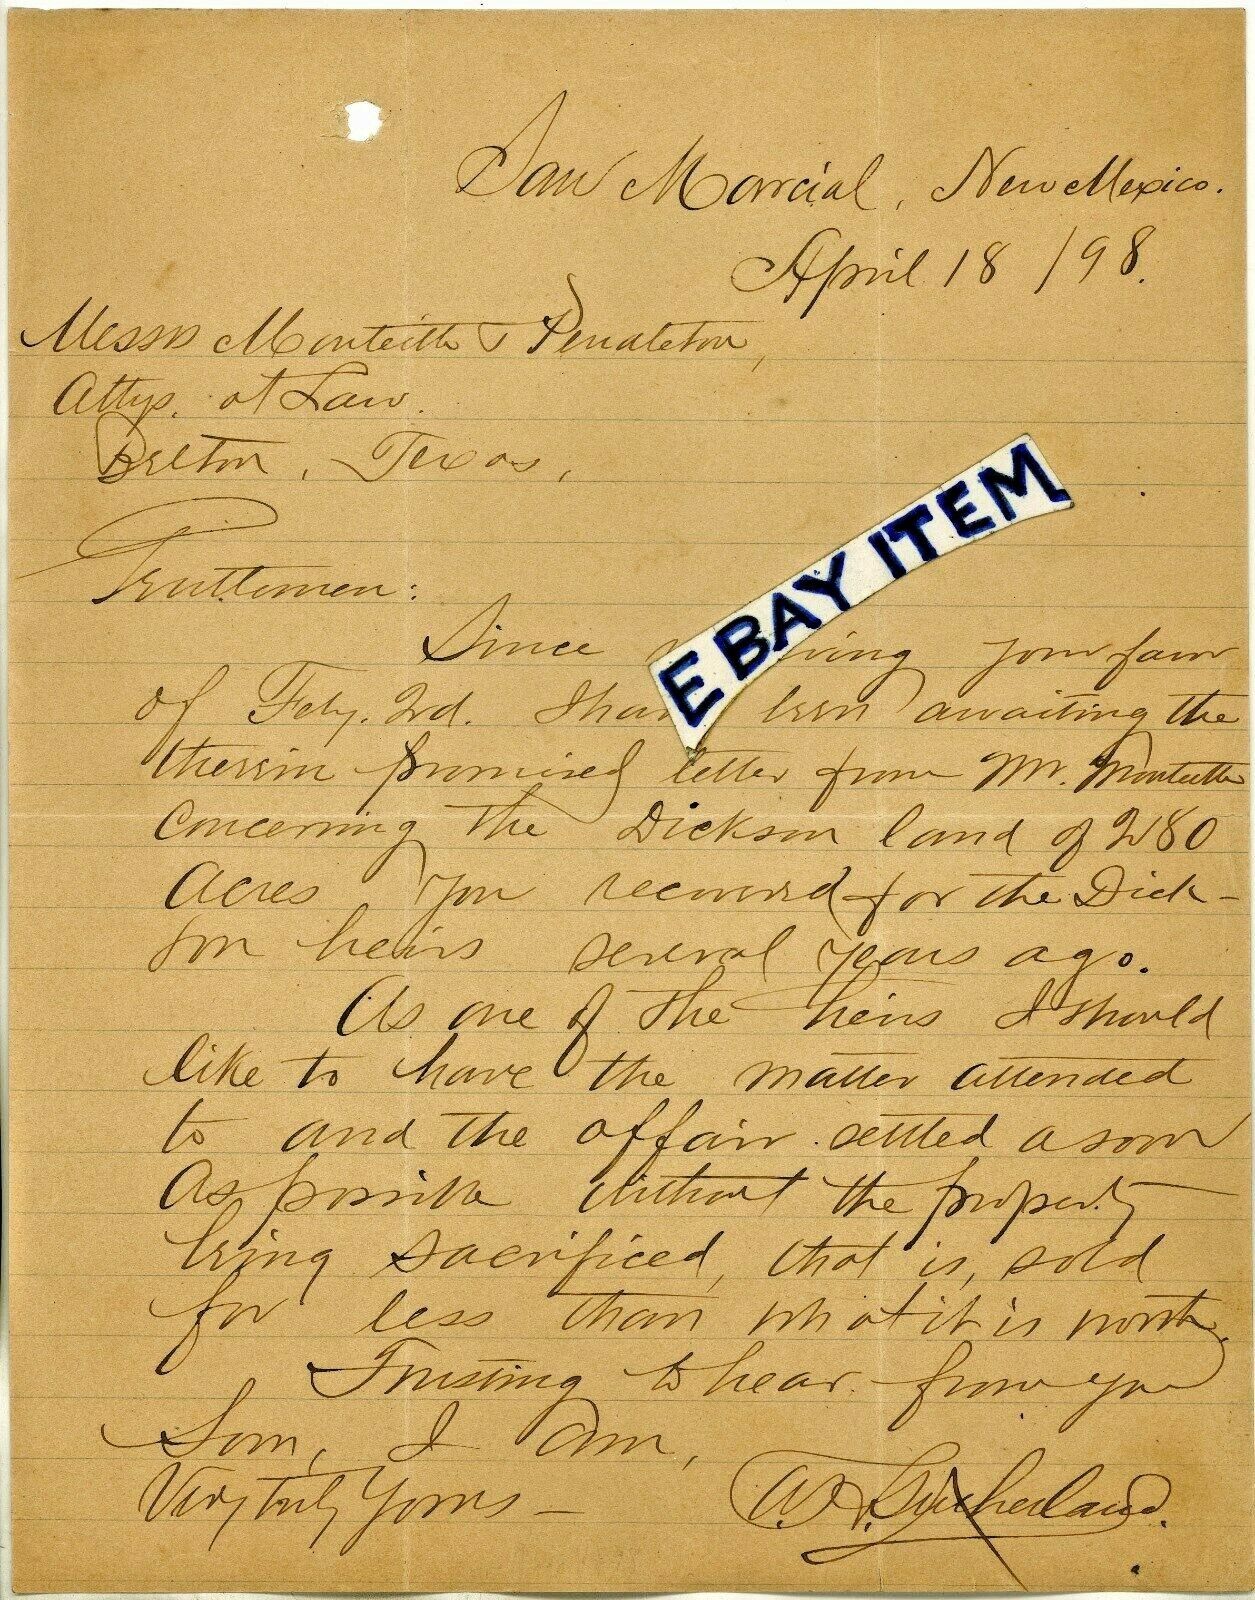 San Marcial, New Mexico.
April 18 /98.
Messrs Monteith & Pendleton,
Attys. at Law.
Belton, Texas,
Gentlemen:
EBAY ITEM
Since your favor
of Feby. 2d. I have been awaiting the
therein promised letter from Mr. Monteith
concerning the Dickson land of 280
acres you recovered for the Dick-
son heirs several years ago.
As one of the heirs I should
like to have the matter attended
to and the affair settled as soon
as possible without the property
being sacrificed, that is, sold
for less than what it is worth.
Trusting to hear from you
Soon, I am,
Very truly Yours -
Sutherland.